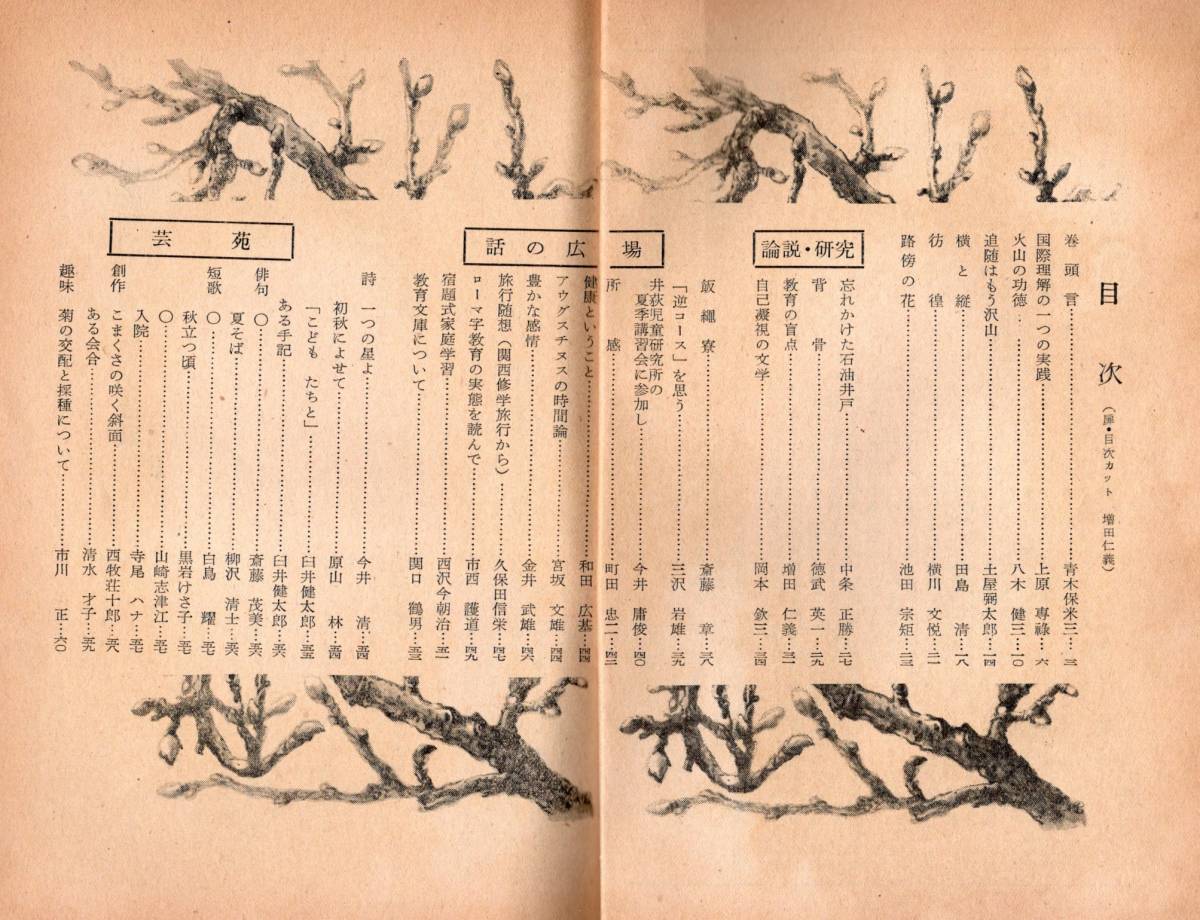 目次
(扉・目次カット 増田仁義)
巻頭言……青木保米三…三
国際理解の一つの実践……上原専祿…六
火山の功徳……八木健三…一〇
追随はもう沢山……土屋弼太郎…一四
横と縦……田島清…一八
彷徨……横川文悦…二一
路傍の花……池田宗矩…二三
論説・研究
忘れかけた石油井戸……中条正勝…二七
背骨……徳武英一…二九
教育の盲点……増田仁義…三一
自己凝視の文学……岡本欽三…三四
飯縄寮……斎藤章…三八
「逆コース」を思う……三沢岩雄…三九
井荻児童研究所の
夏季講習会に参加し……今井庸俊…四〇
所感……町田忠二…四二
話の広場
健康ということ……和田広基…四四
アウグスチヌスの時間論……宮坂文雄…四四
豊かな感情……金井武雄…四六
旅行随想(関西修学旅行から)……久保田信栄…四七
ローマ字教育の実態を読んで……市西護道…四九
宿題式家庭学習……西沢今朝治…五一
教育文庫について……関口鶴男…五三
芸苑
詩 一つの星よ……今井清…五四
初秋によせて……原山林…五四
「こども たちと」……臼井健太郎…五五
ある手記……臼井健太郎…五六
俳句 〇……斎藤茂美…五六
夏そば……柳沢清士…五六
短歌 〇……白鳥耀…五七
秋立つ頃……黒岩けさ子…五七
〇……山崎志津江…五七
入院……寺尾ハナ…五七
創作 こまくさの咲く斜面……西牧荘十郎…五八
ある会合……清水才子…五九
趣味 菊の交配と採種について……市川正…六〇